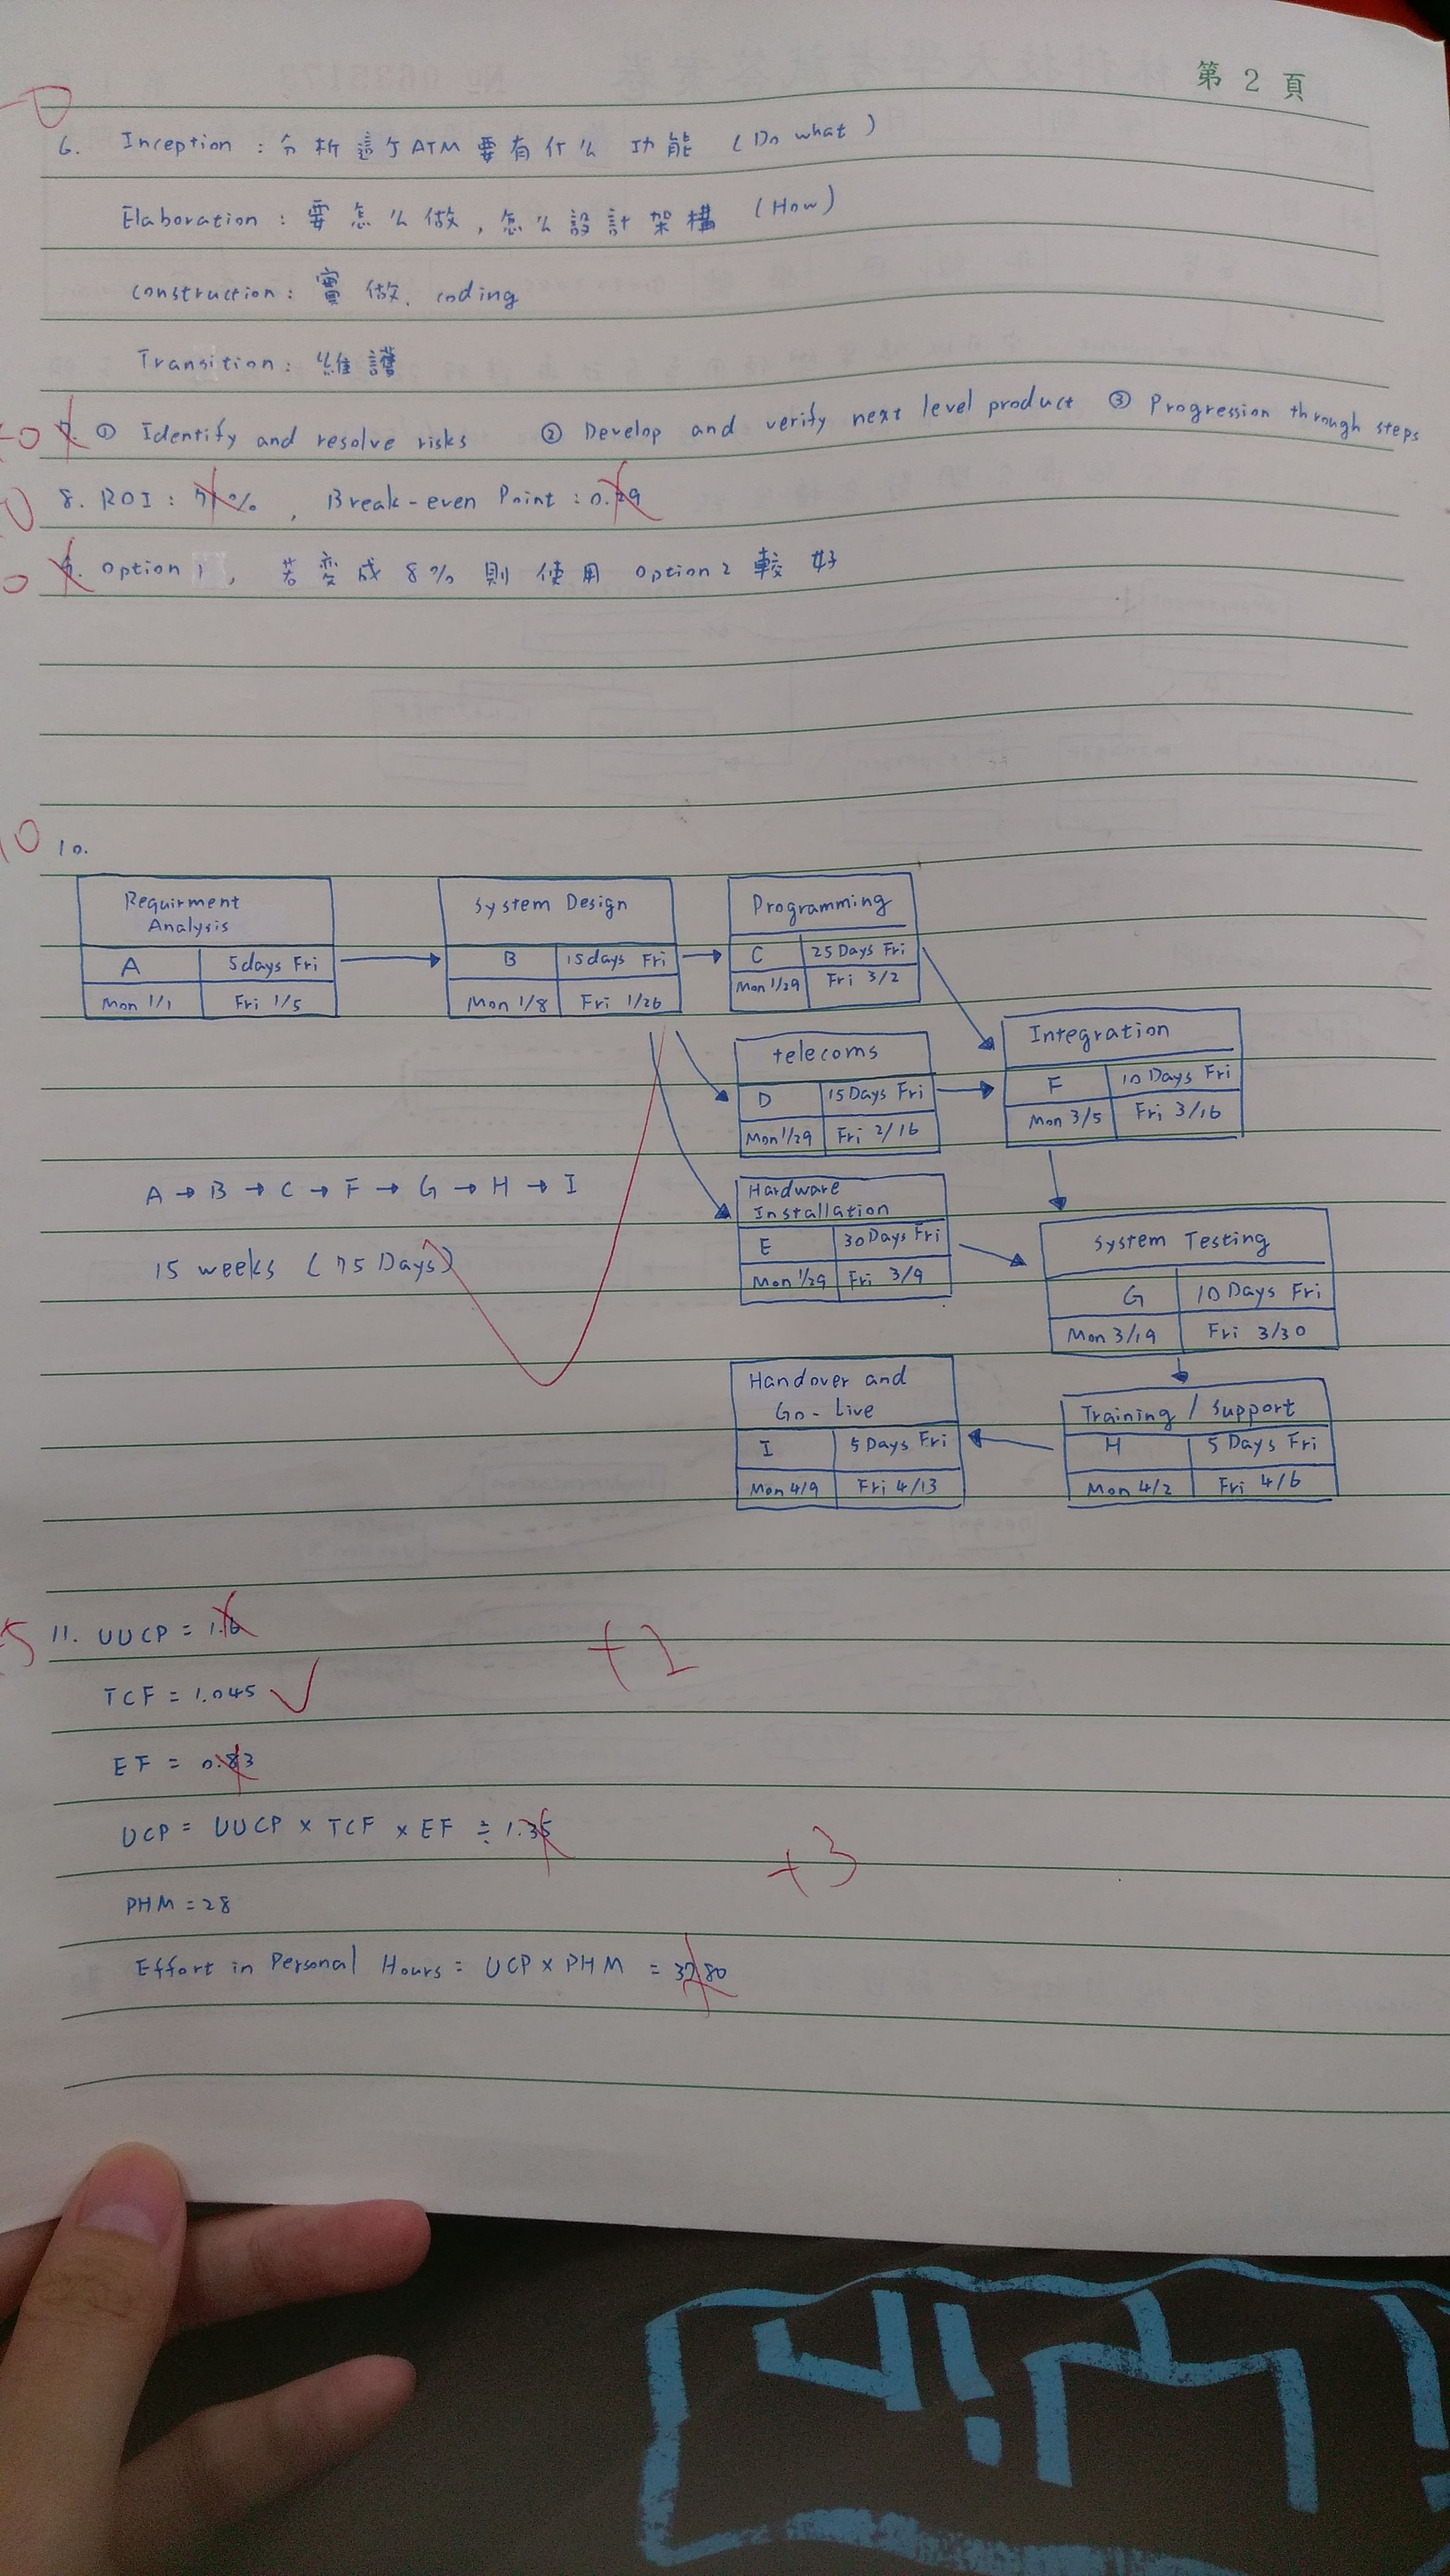 第 2 頁
6. Inception : 分析這个ATM要有什么 功能 (Do what)
Elaboration : 要怎么做, 怎么設計架構 (How)
construction : 實做. coding
Transition : 維護
① Identify and resolve risks ② Develop and verify next level product ③ Progression through steps
8. ROI : 71% , Break-even Point : 0.29
option 1 , 若變成 8% 則使用 option 2 較好
10
10.
Requirment Analysis
A 5days Fri
Mon 1/1 Fri 1/5
System Design
B 15days Fri
Mon 1/8 Fri 1/26
Programming
C 25Days Fri
Mon 1/29 Fri 3/2
telecoms
D 15Days Fri
Mon 1/29 Fri 2/16
Integration
F 10 Days Fri
Mon 3/5 Fri 3/16
A → B → C → F → G → H → I
15 weeks (75 Days)
Hardware Installation
E 30Days Fri
Mon 1/29 Fri 3/9
System Testing
G 10Days Fri
Mon 3/19 Fri 3/30
Handover and Go-Live
I 5Days Fri
Mon 4/9 Fri 4/13
Training / Support
H 5 Days Fri
Mon 4/2 Fri 4/6
11. UUCP = 1.6
+1
TCF = 1.045
EF = 0.83
UCP = UUCP × TCF × EF ≒ 1.35
+3
PHM = 28
Effort in Personal Hours = UCP × PHM = 3780